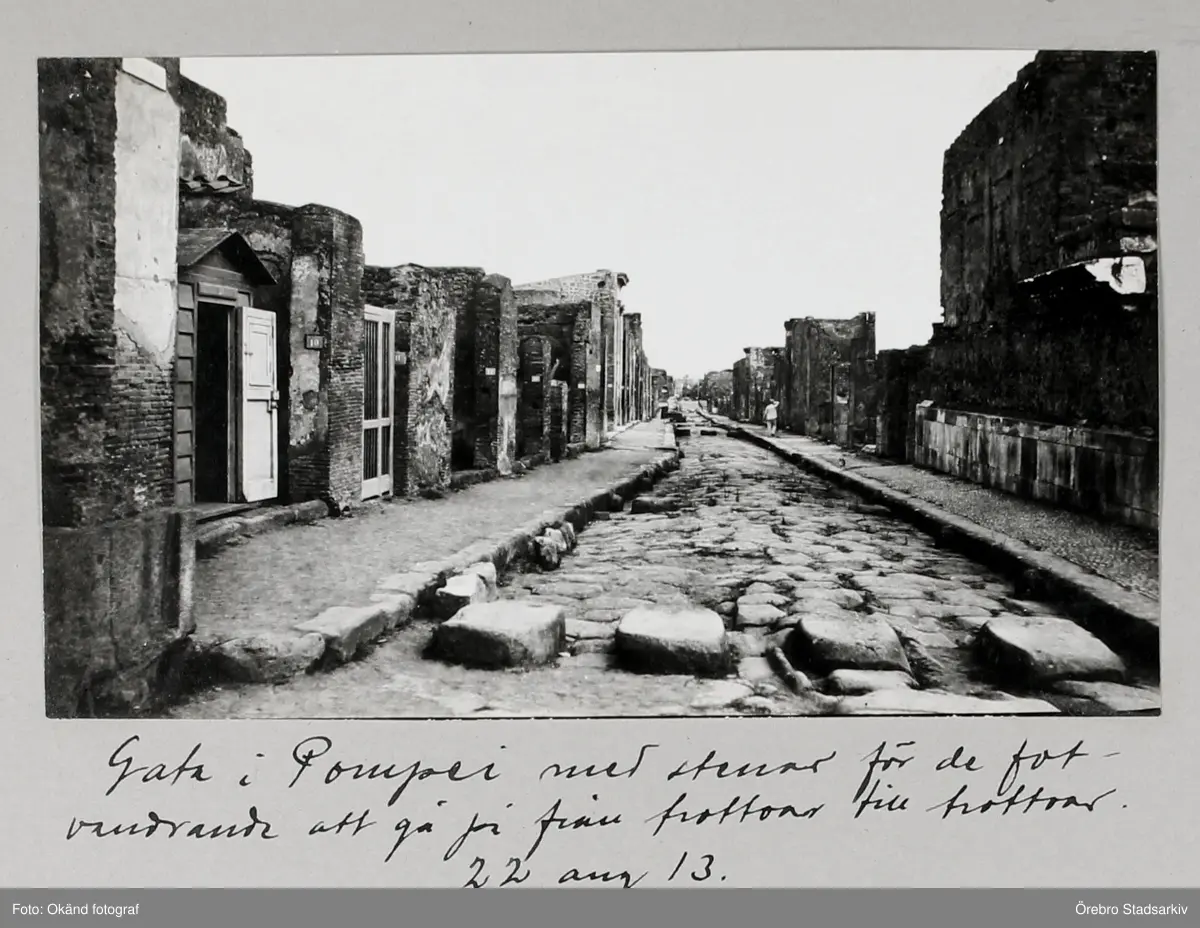 10
Gata i Pompei med stenar för de fot-
vandrande att gå på från trottoar till trottoar.
22 aug 13.
Foto: Okänd fotograf
Örebro Stadsarkiv